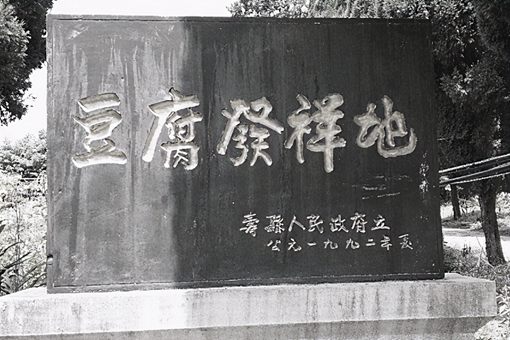 豆腐發祥地
壽縣人民政府立
公元一九九二年夏